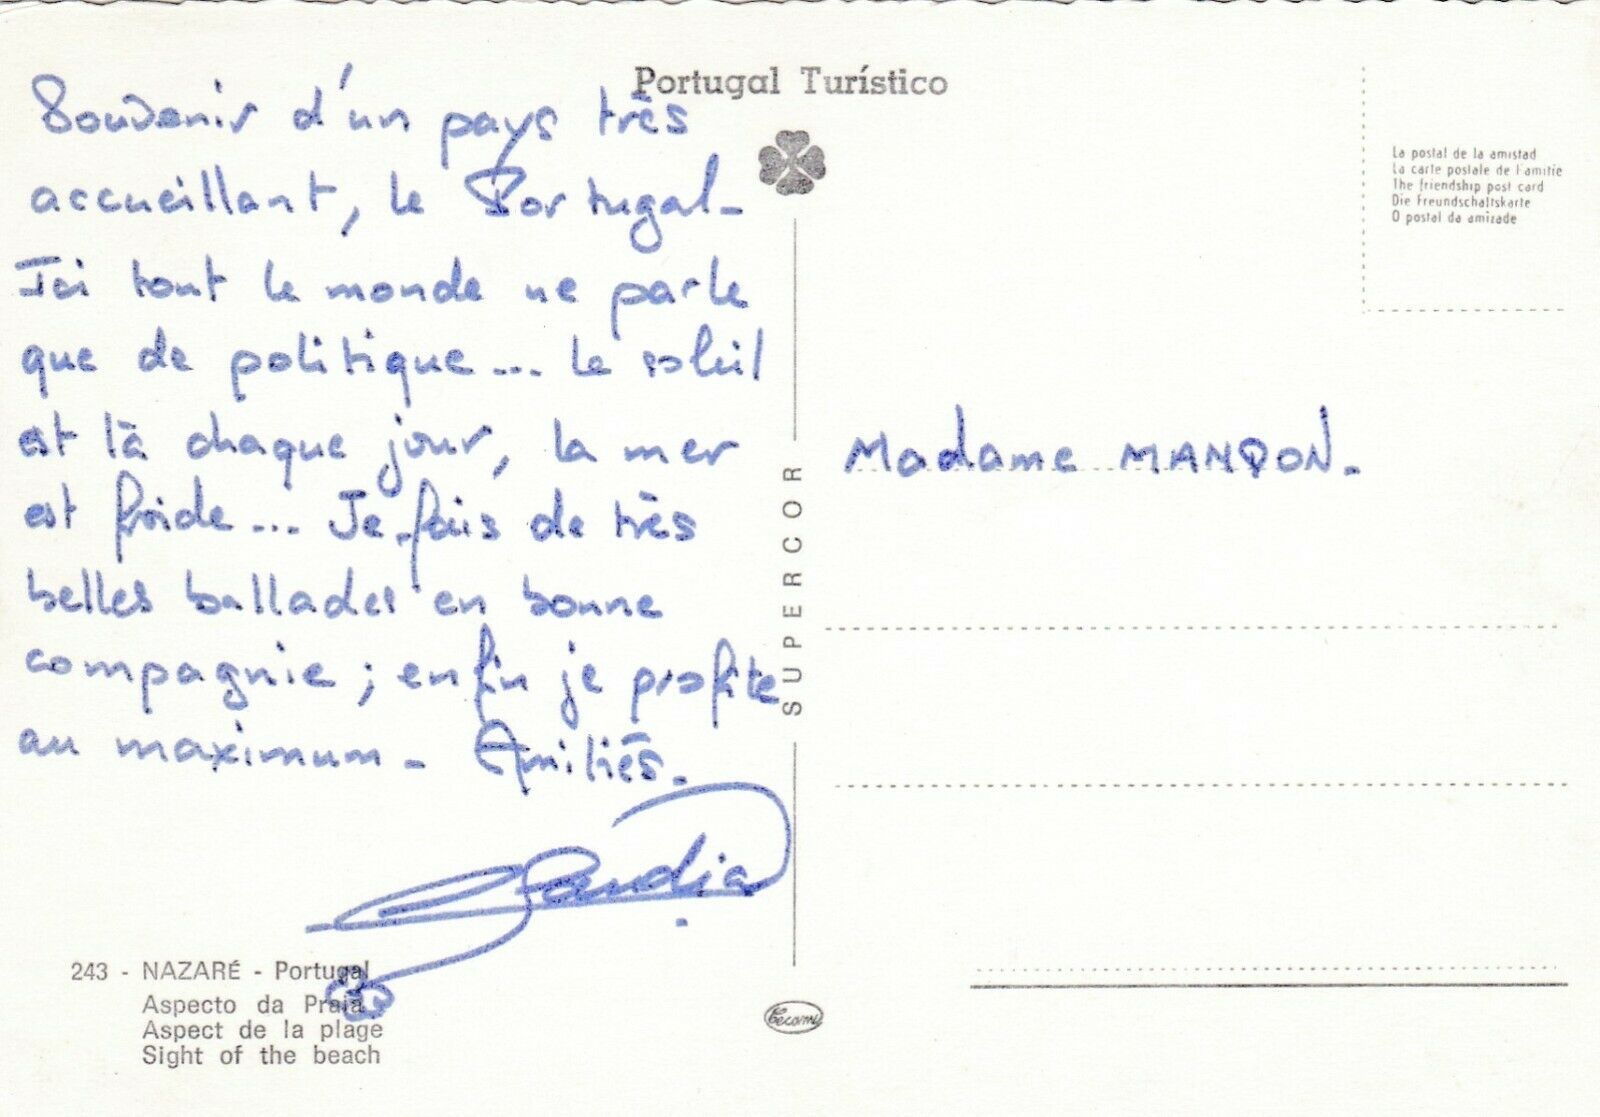 Portugal Turístico
Souvenir d'un pays très
accueillant, le Portugal-
Ici tout le monde ne parle
que de politique... le soleil
est là chaque jour, la mer
est froide... Je fais de très
belles ballades en bonne
compagnie ; enfin je profite
au maximum - Amitiés.
243 - NAZARÉ - Portugal
Aspecto da Praia
Aspect de la plage
Sight of the beach
SUPERCOR
La postal de la amistad
La carte postale de l'amitie
The friendship post card
Die Freundschaftskarte
O postal da amizade
Madame MANDON.